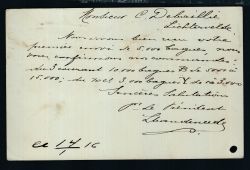 Monsieur C Debaillie
Lichtervelde
Nous avons bien reçu votre
premier envoi de 5,000 bagues, nous
vous confirmons nos commandes:
du 3 courant 10000 bagues B de 5000 à
15,000; du 10 ct 3,000 bagues de 1 à 3,000
Sincères Salutations
Pr Le Président
17/16